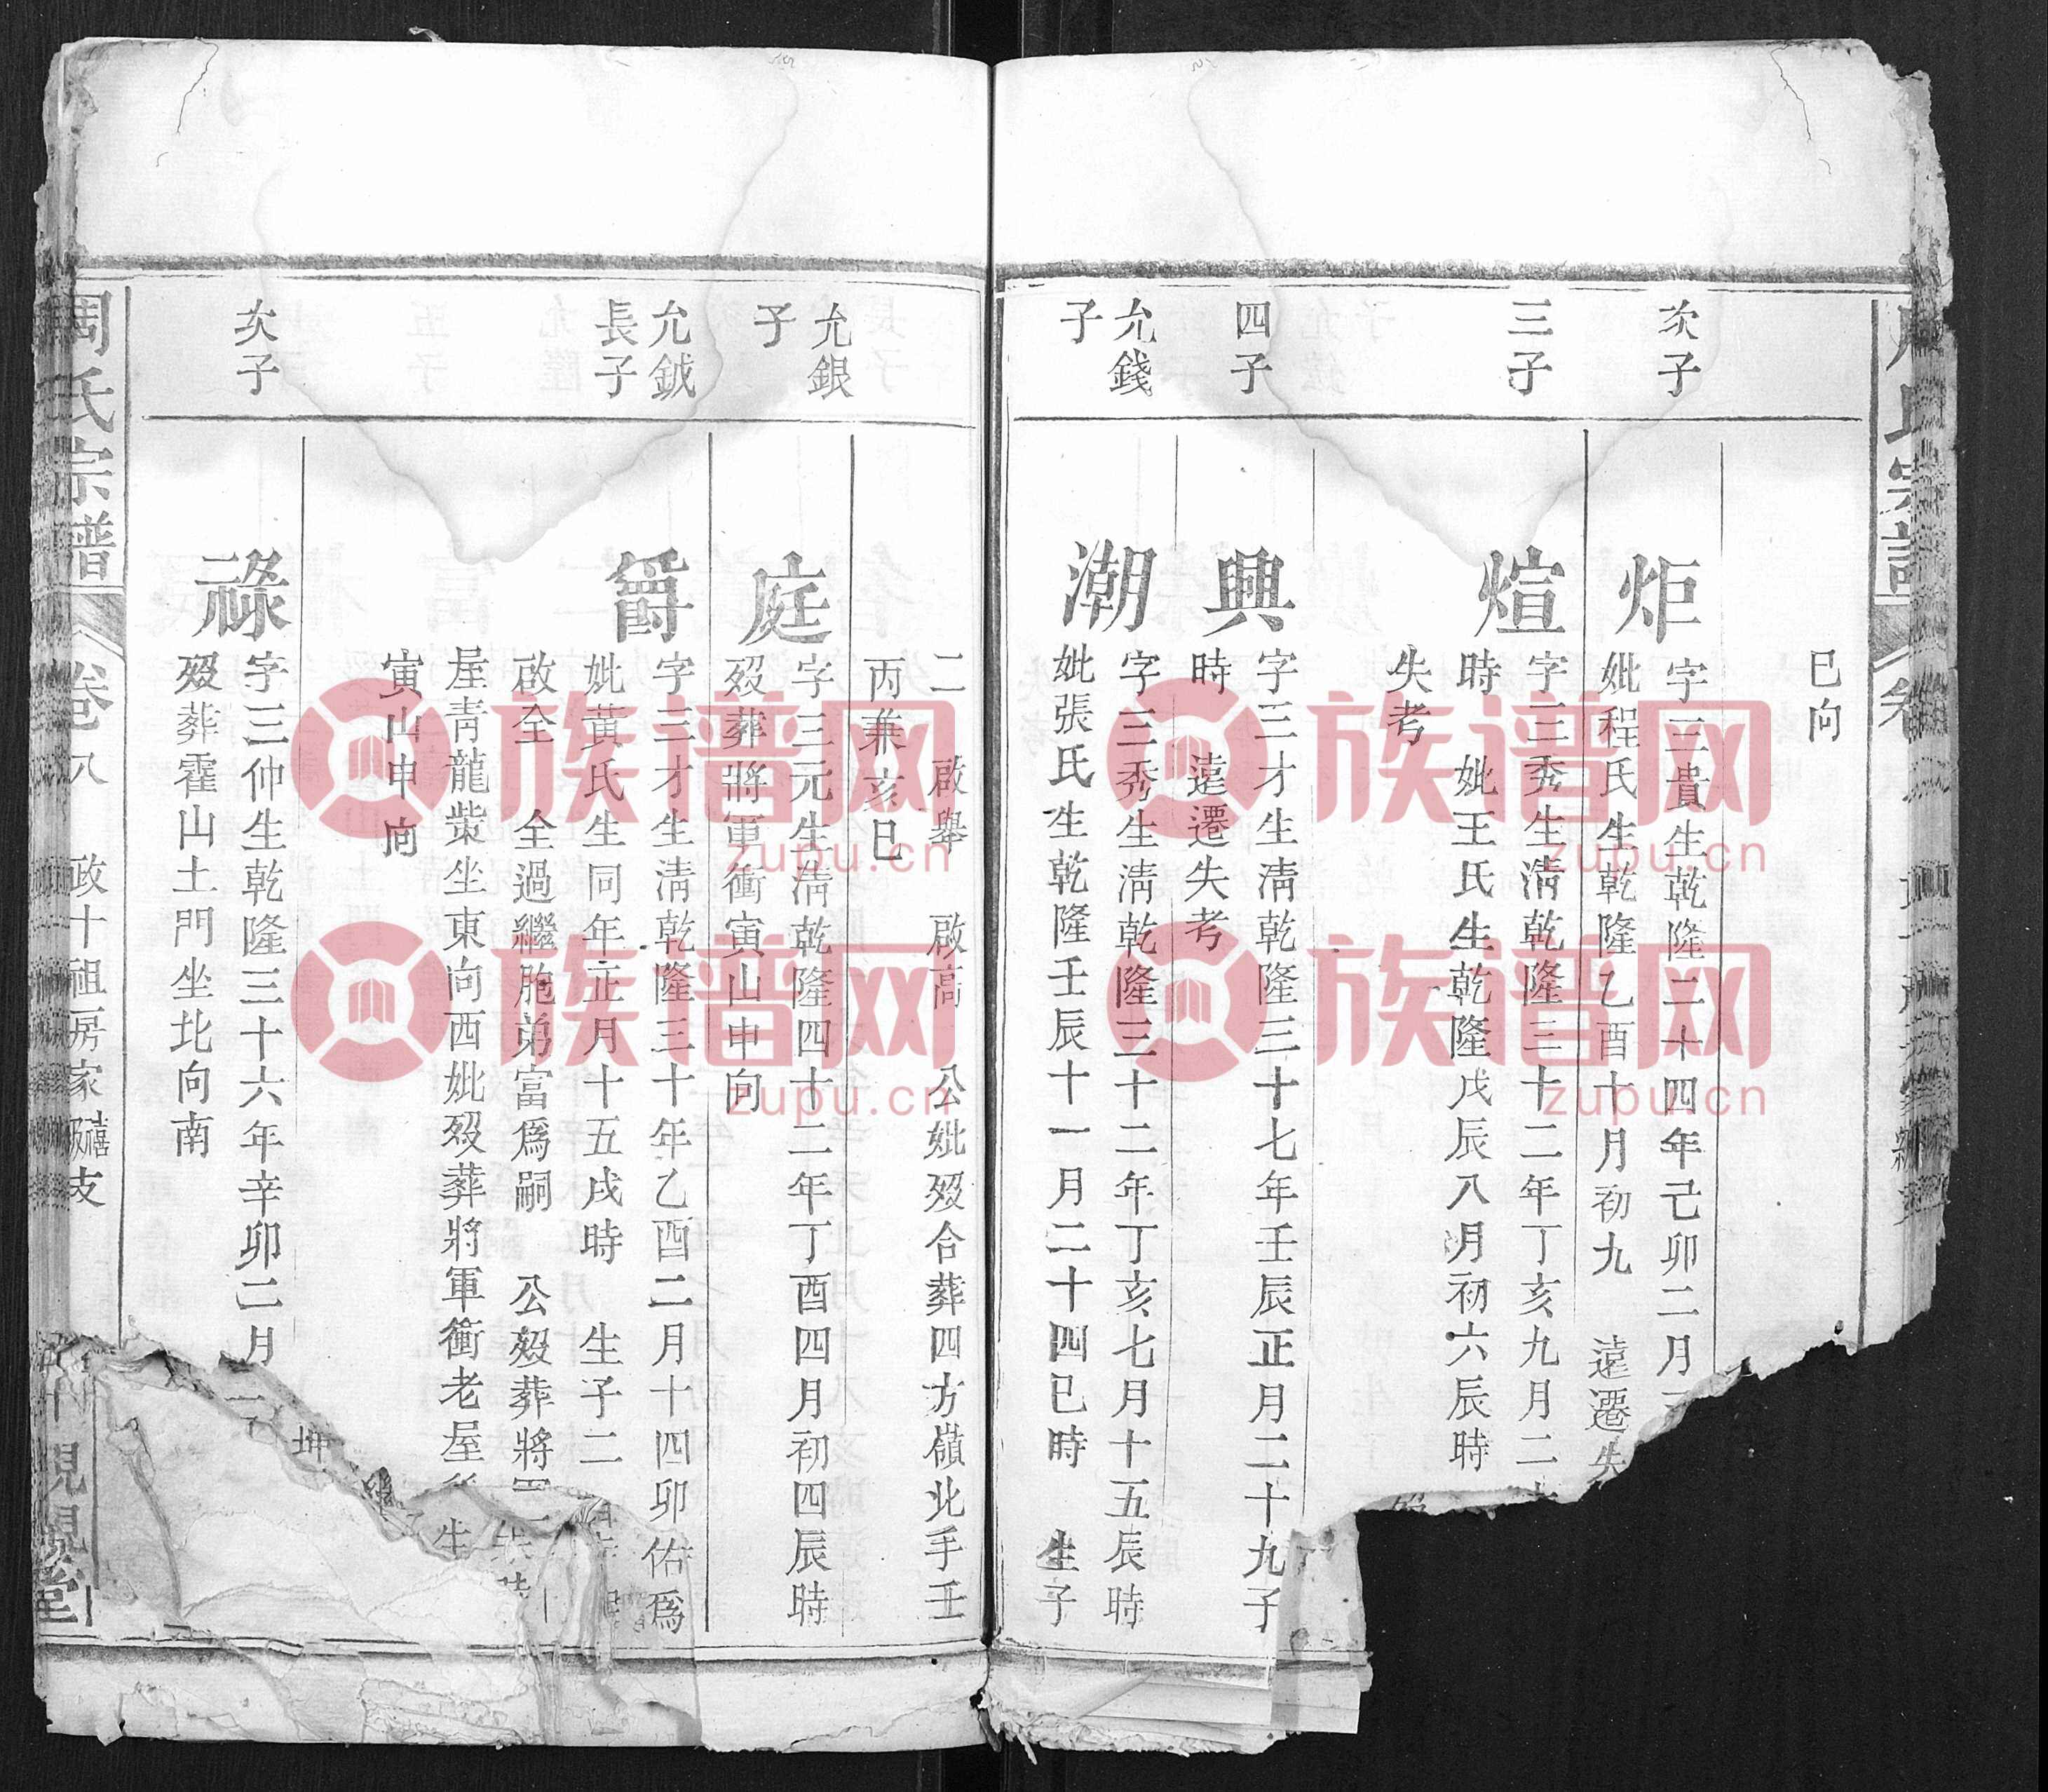 巳向
次子
炬
字三貴生乾隆二十四年己卯二月
妣程氏生乾隆乙酉十月初九　遠遷失
三子
煊
字三秀生淸乾隆三十二年丁亥九月二
時　妣王氏生乾隆戊辰八月初六辰時
失考
四子
興
字三才生淸乾隆三十七年壬辰正月二十九子
時　遠遷失考
允錢
子
潮
字三秀生淸乾隆三十二年丁亥七月十五辰時
妣張氏生乾隆壬辰十一月二十四巳時　生子
二　啟舉　啟高　公妣歿合葬四方嶺北手壬
丙兼亥巳
允銀
子
庭
字三元生淸乾隆四十二年丁酉四月初四辰時
歿葬將軍衝寅山申向
允鉞
長子
爵
字三才生淸乾隆三十年乙酉二月十四卯佑爲
妣黃氏生同年正月十五戌時　生子二
啟全　全過繼胞弟富爲嗣　公歿葬將
屋靑龍柴坐東向西妣歿葬將軍衝老屋
寅山申向
次子
祿
字三仲生乾隆三十六年辛卯二月
歿葬霍山土門坐北向南
周氏宗譜
卷八　政十祖房家禧級支
坤
族谱网
zupu.cn
族谱网
zupu.cn
族谱网
zupu.cn
族谱网
zupu.cn